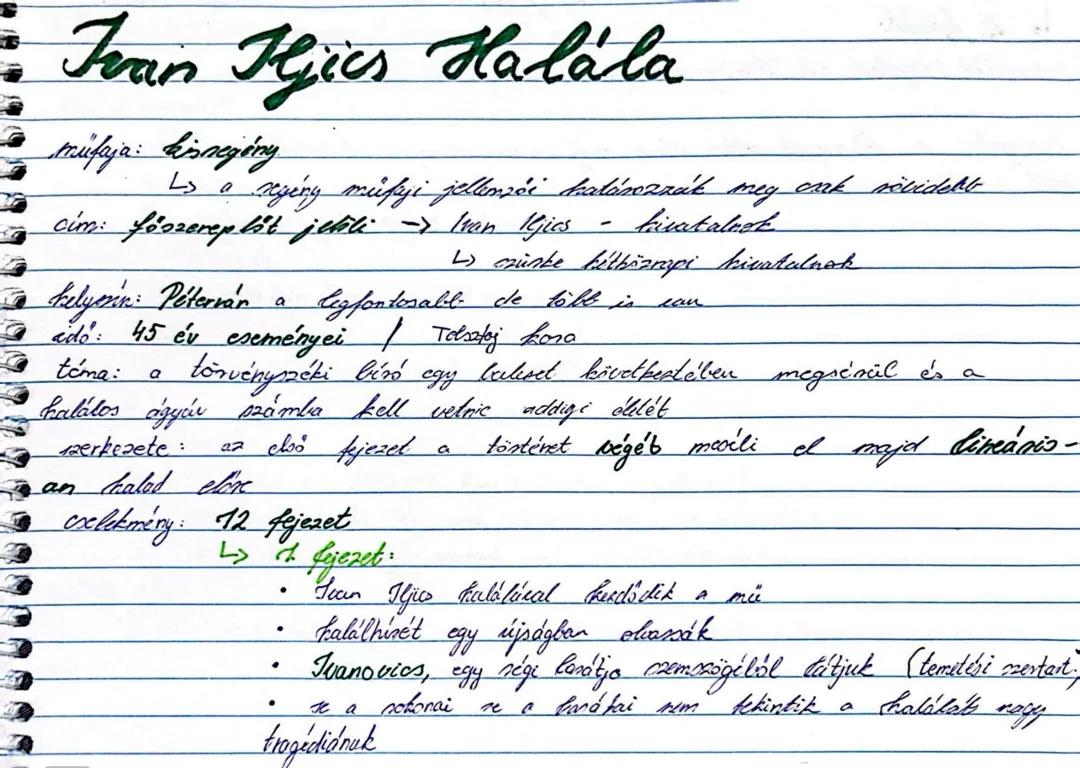 Ivan Iljics Halála
műfaja: kisregény
↳ a regény műfaji jellemzői határozzák meg csak rövidebb
cím: főszereplőt jelöli → Ivan Iljics - hivatalnok
↳ szürke hétköznapi hivatalnok
helyszín: Pétervár a legfontosabb de több is van
idő: 45 év eseményei / Tolsztoj kora
téma: a törvényszéki bíró egy baleset következtében megsérül és a
halálos ágyán számba kell vetnie addigi életét
szerkezete: az első fejezet a történet végét meséli el majd lineáris-
an halad előre
cselekmény: 12 fejezet
↳ 1. fejezet:
• Ivan Iljics halálával kezdődik a mű
• halálhírét egy újságban olvassák
• Ivanovics, egy régi barátja szemszögéből látjuk (temetési szertart.)
• se a rokonai se a barátai nem tekintik a halálát nagy
tragédiának